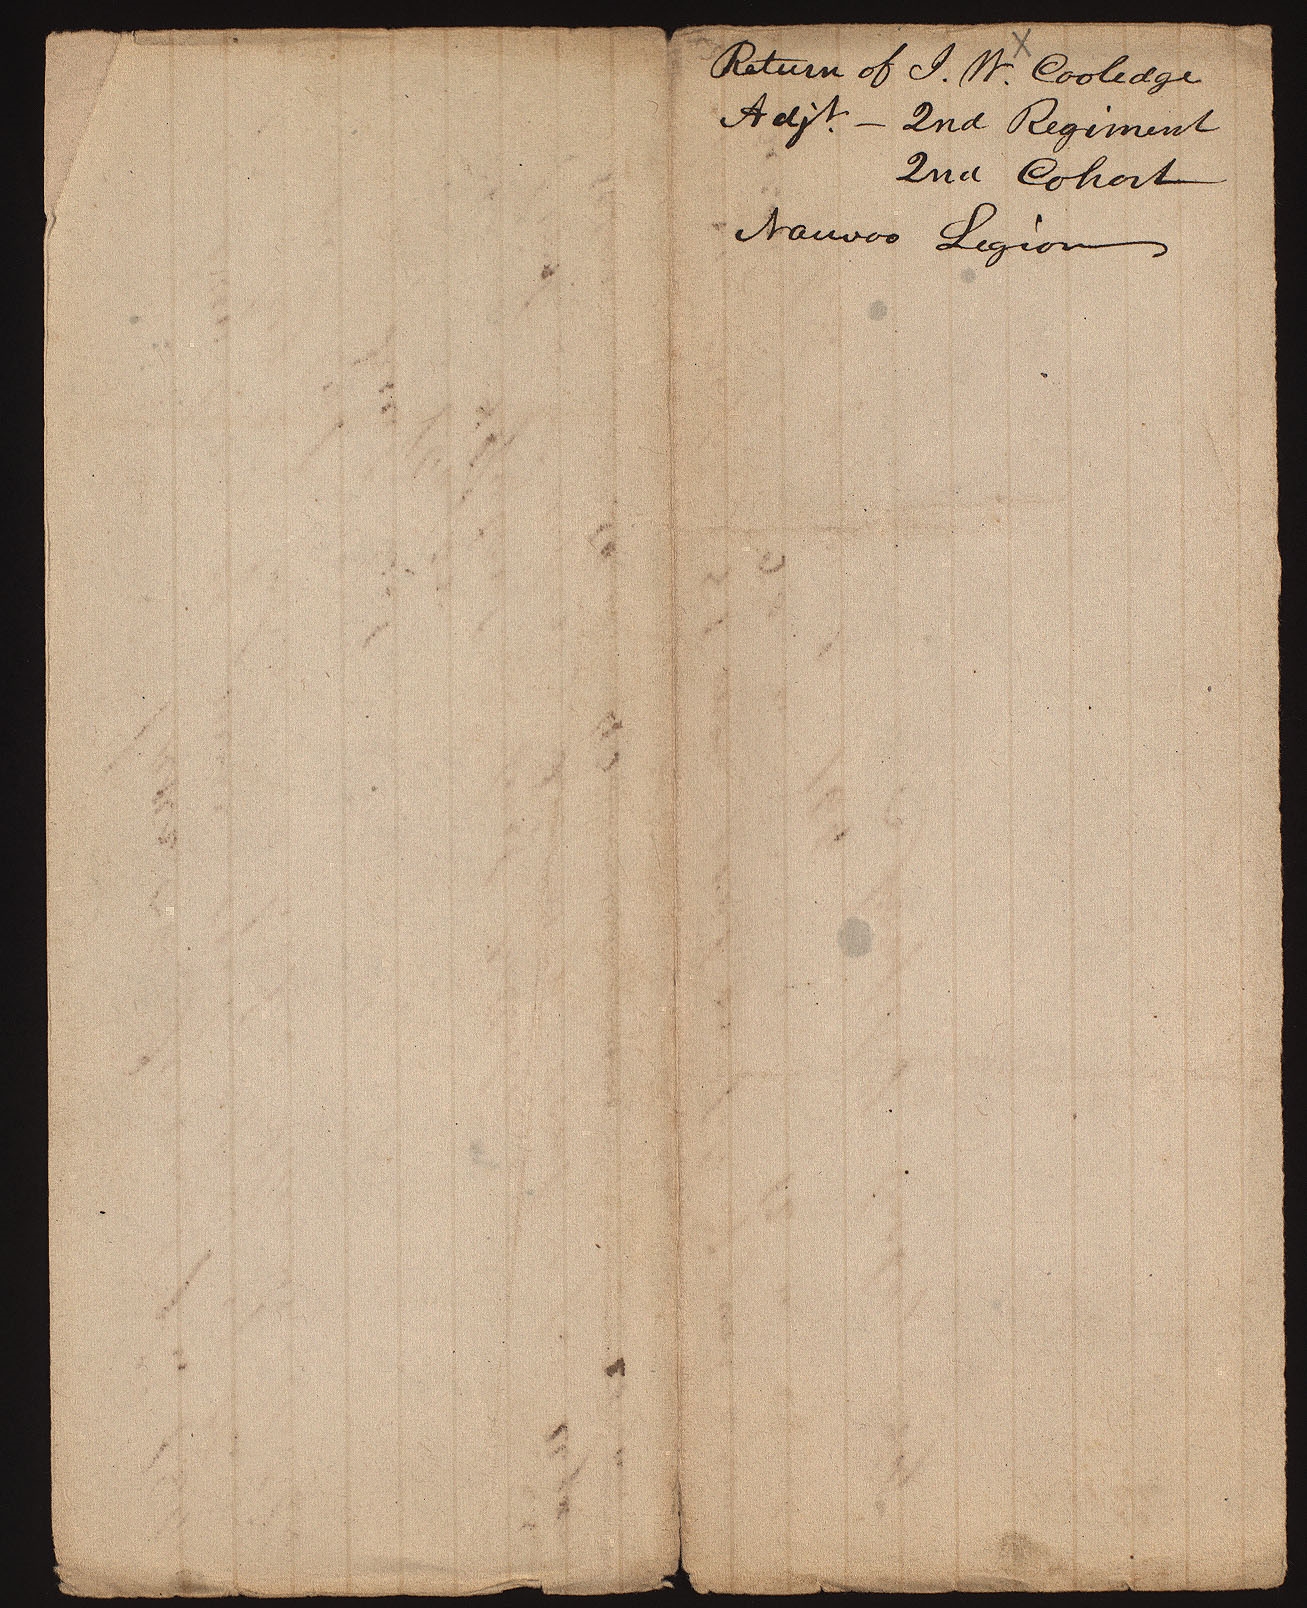 Return of J. W. Cooledge
Adjt. — 2nd Regiment
2nd Cohort
Nauvoo Legion